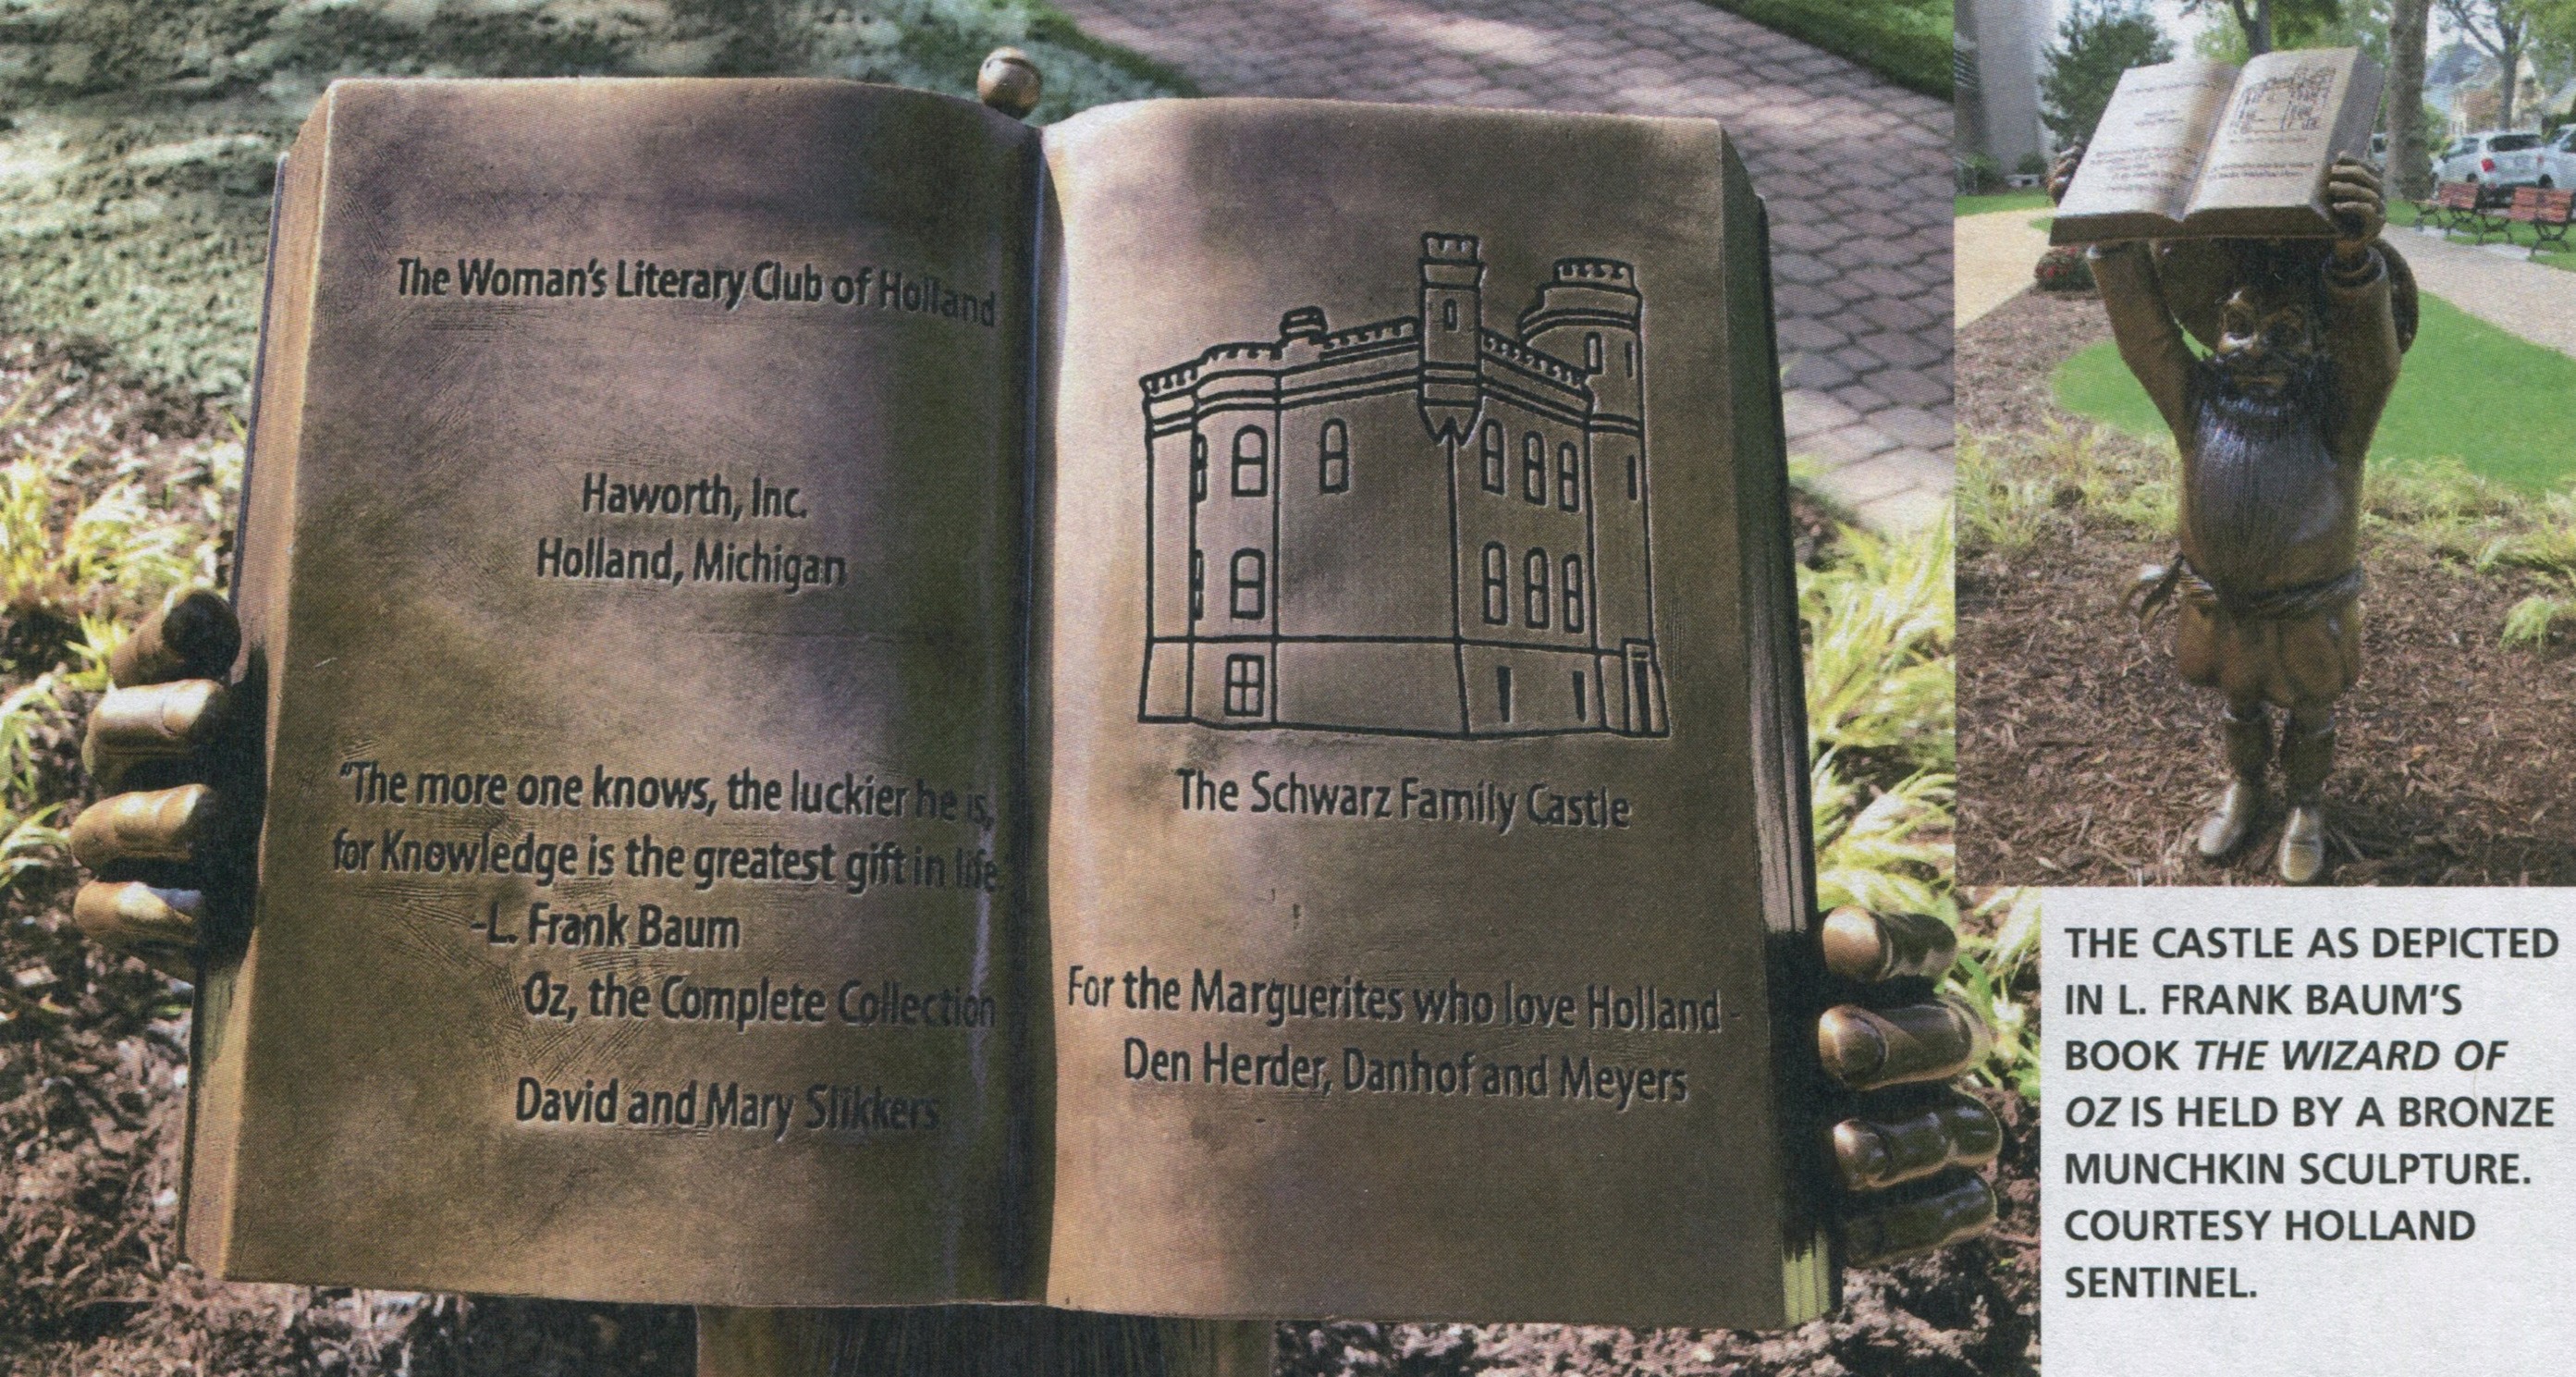 The Woman's Literary Club of Holland
Haworth, Inc.
Holland, Michigan
"The more one knows, the luckier he is,
for Knowledge is the greatest gift in life."
-L. Frank Baum
Oz, the Complete Collection
David and Mary Slikkers
The Schwarz Family Castle
For the Marguerites who love Holland -
Den Herder, Danhof and Meyers
THE CASTLE AS DEPICTED
IN L. FRANK BAUM'S
BOOK THE WIZARD OF
OZ IS HELD BY A BRONZE
MUNCHKIN SCULPTURE.
COURTESY HOLLAND
SENTINEL.